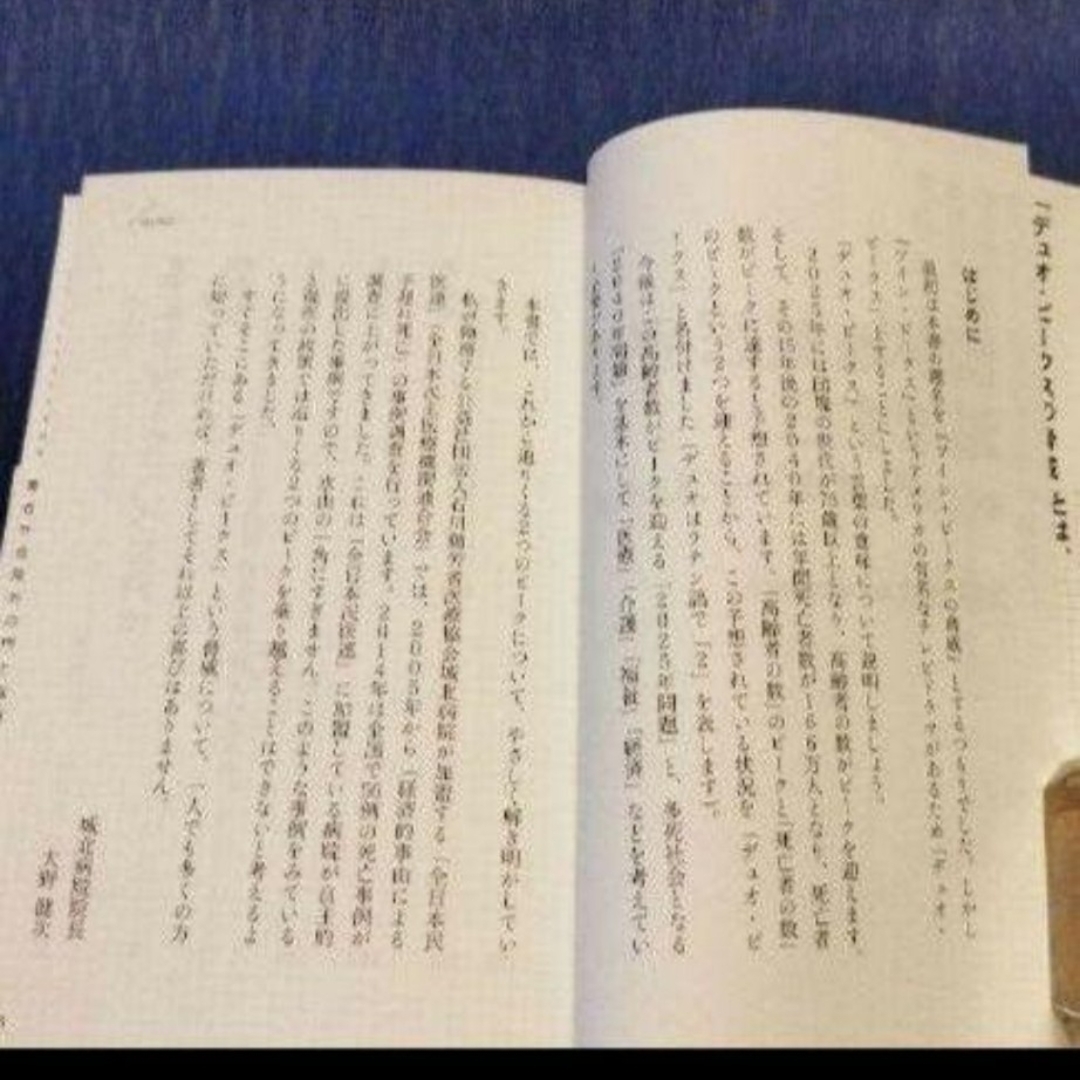 はじめに
最初は本書の題名を『ツイン・ピークスの脅威』とするつもりでした。しかし、
『ツイン・ピークス』というアメリカの有名なテレビドラマがあるため『デュオ・
ピークス』とすることにしました。
『デュオ・ピークス』という言葉の意味について説明しましょう。
2025年には団塊の世代が75歳以上となり、高齢者の数がピークを迎えます。
そして、その15年後の2040年には年間死亡者数が166万人となり、死亡者
数がピークに達すると予想されています。「高齢者の数」のピークと「死亡者の数」
のピークという2つを連とることから、この予想されている状況を『デュオ・ピ
ークス』と名付けました（デュオはラテン語で「2」を表します）。
今後はこの高齢者数がピークを迎える「2025年問題」と、多死社会となる
「2040年問題」を基本にして「医療」「介護」「福祉」「経済」などを考えてい
本書では、これから迫りくる2つのピークについて、やさしく解き明かしてい
きます。
私が勤務する公益社団法人石川勤労者医療協会城北病院が加盟する「全日本民
医連」（全日本民主医療機関連合会）では、2005年から「経済的事由による
手遅れ死亡」の事例調査を行っています。2014年は全国で56例の死亡事例が
調査に上がってきました。これは「全日本民医連」に加盟している病院が自主的
に提出した事例ですので、氷山の一角にすぎません。このような事例をみている
と現在の政策では迫りくる2つのピークを乗り越えることはできないと考えるよ
うになってきました。
すぐそこにある『デュオ・ピークス』という脅威について、一人でも多くの方
に知っていただければ、著者としてそれ以上の喜びはありません。
城北病院院長
大野 健次